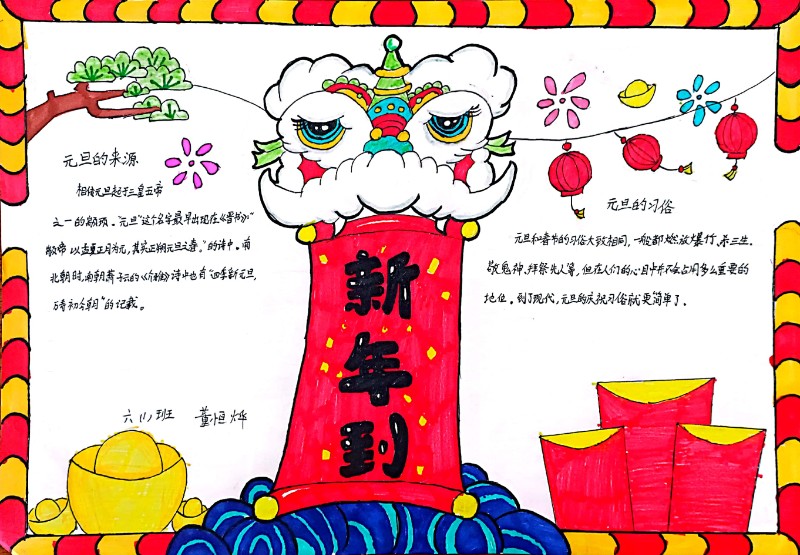 元旦的来源
相传元旦起于三皇五帝
之一的颛顼。"元旦"这个名字最早出现在《晋书》:"
颛帝以孟夏正月为元,其实正朔元旦之春。"的诗中。南
北朝时,南朝萧子云的《介雅》诗中也有"四季新元旦,
万寿初今朝"的记载。
六(1)班 董恒烨
新年到
元旦的习俗
元旦和春节的习俗大致相同,一般都燃放爆竹、杀三生、
敬鬼神、拜祭先人等,但在人们的心目中并不会占用多么重要的
地位。到了现代,元旦的庆祝习俗就更简单了。